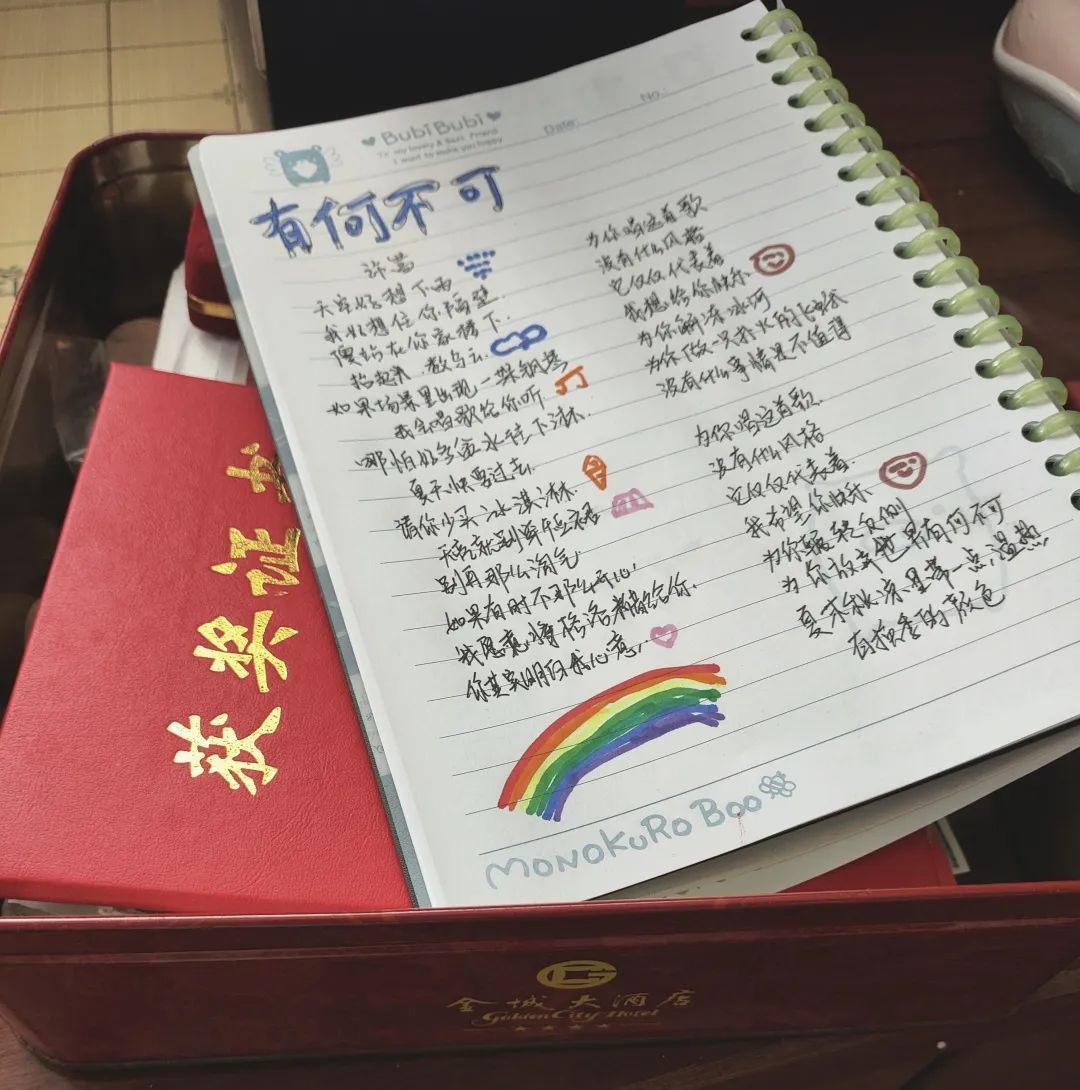 BubiBubi
To my lovely & Best Friend
I want to make you happy
Date:
No.:
有何不可
许嵩
天空好想下雨
我好想住你隔壁
傻站在你家楼下
抬起头 数乌云
如果场景里出现一架钢琴
我会唱歌给你听
哪怕好多盆水往下淋
夏天快要过去
请你少买冰淇淋
天凉就别穿短裙
别再那么淘气
如果有时不那么开心
我愿意将格洛米借给你
你其实明白我心意
为你唱这首歌
没有什么风格
它仅仅代表着
我想给你快乐
为你解冻冰河
为你做一只扑火的飞蛾
没有什么事情是不值得
为你唱这首歌
没有什么风格
它仅仅代表着
我希望你快乐
为你辗转反侧
为你放弃世界有何不可
夏末秋凉里带一点温热
有换季的颜色
MONOKURO BOO
获奖证
金城大酒店
Golden City Hotel